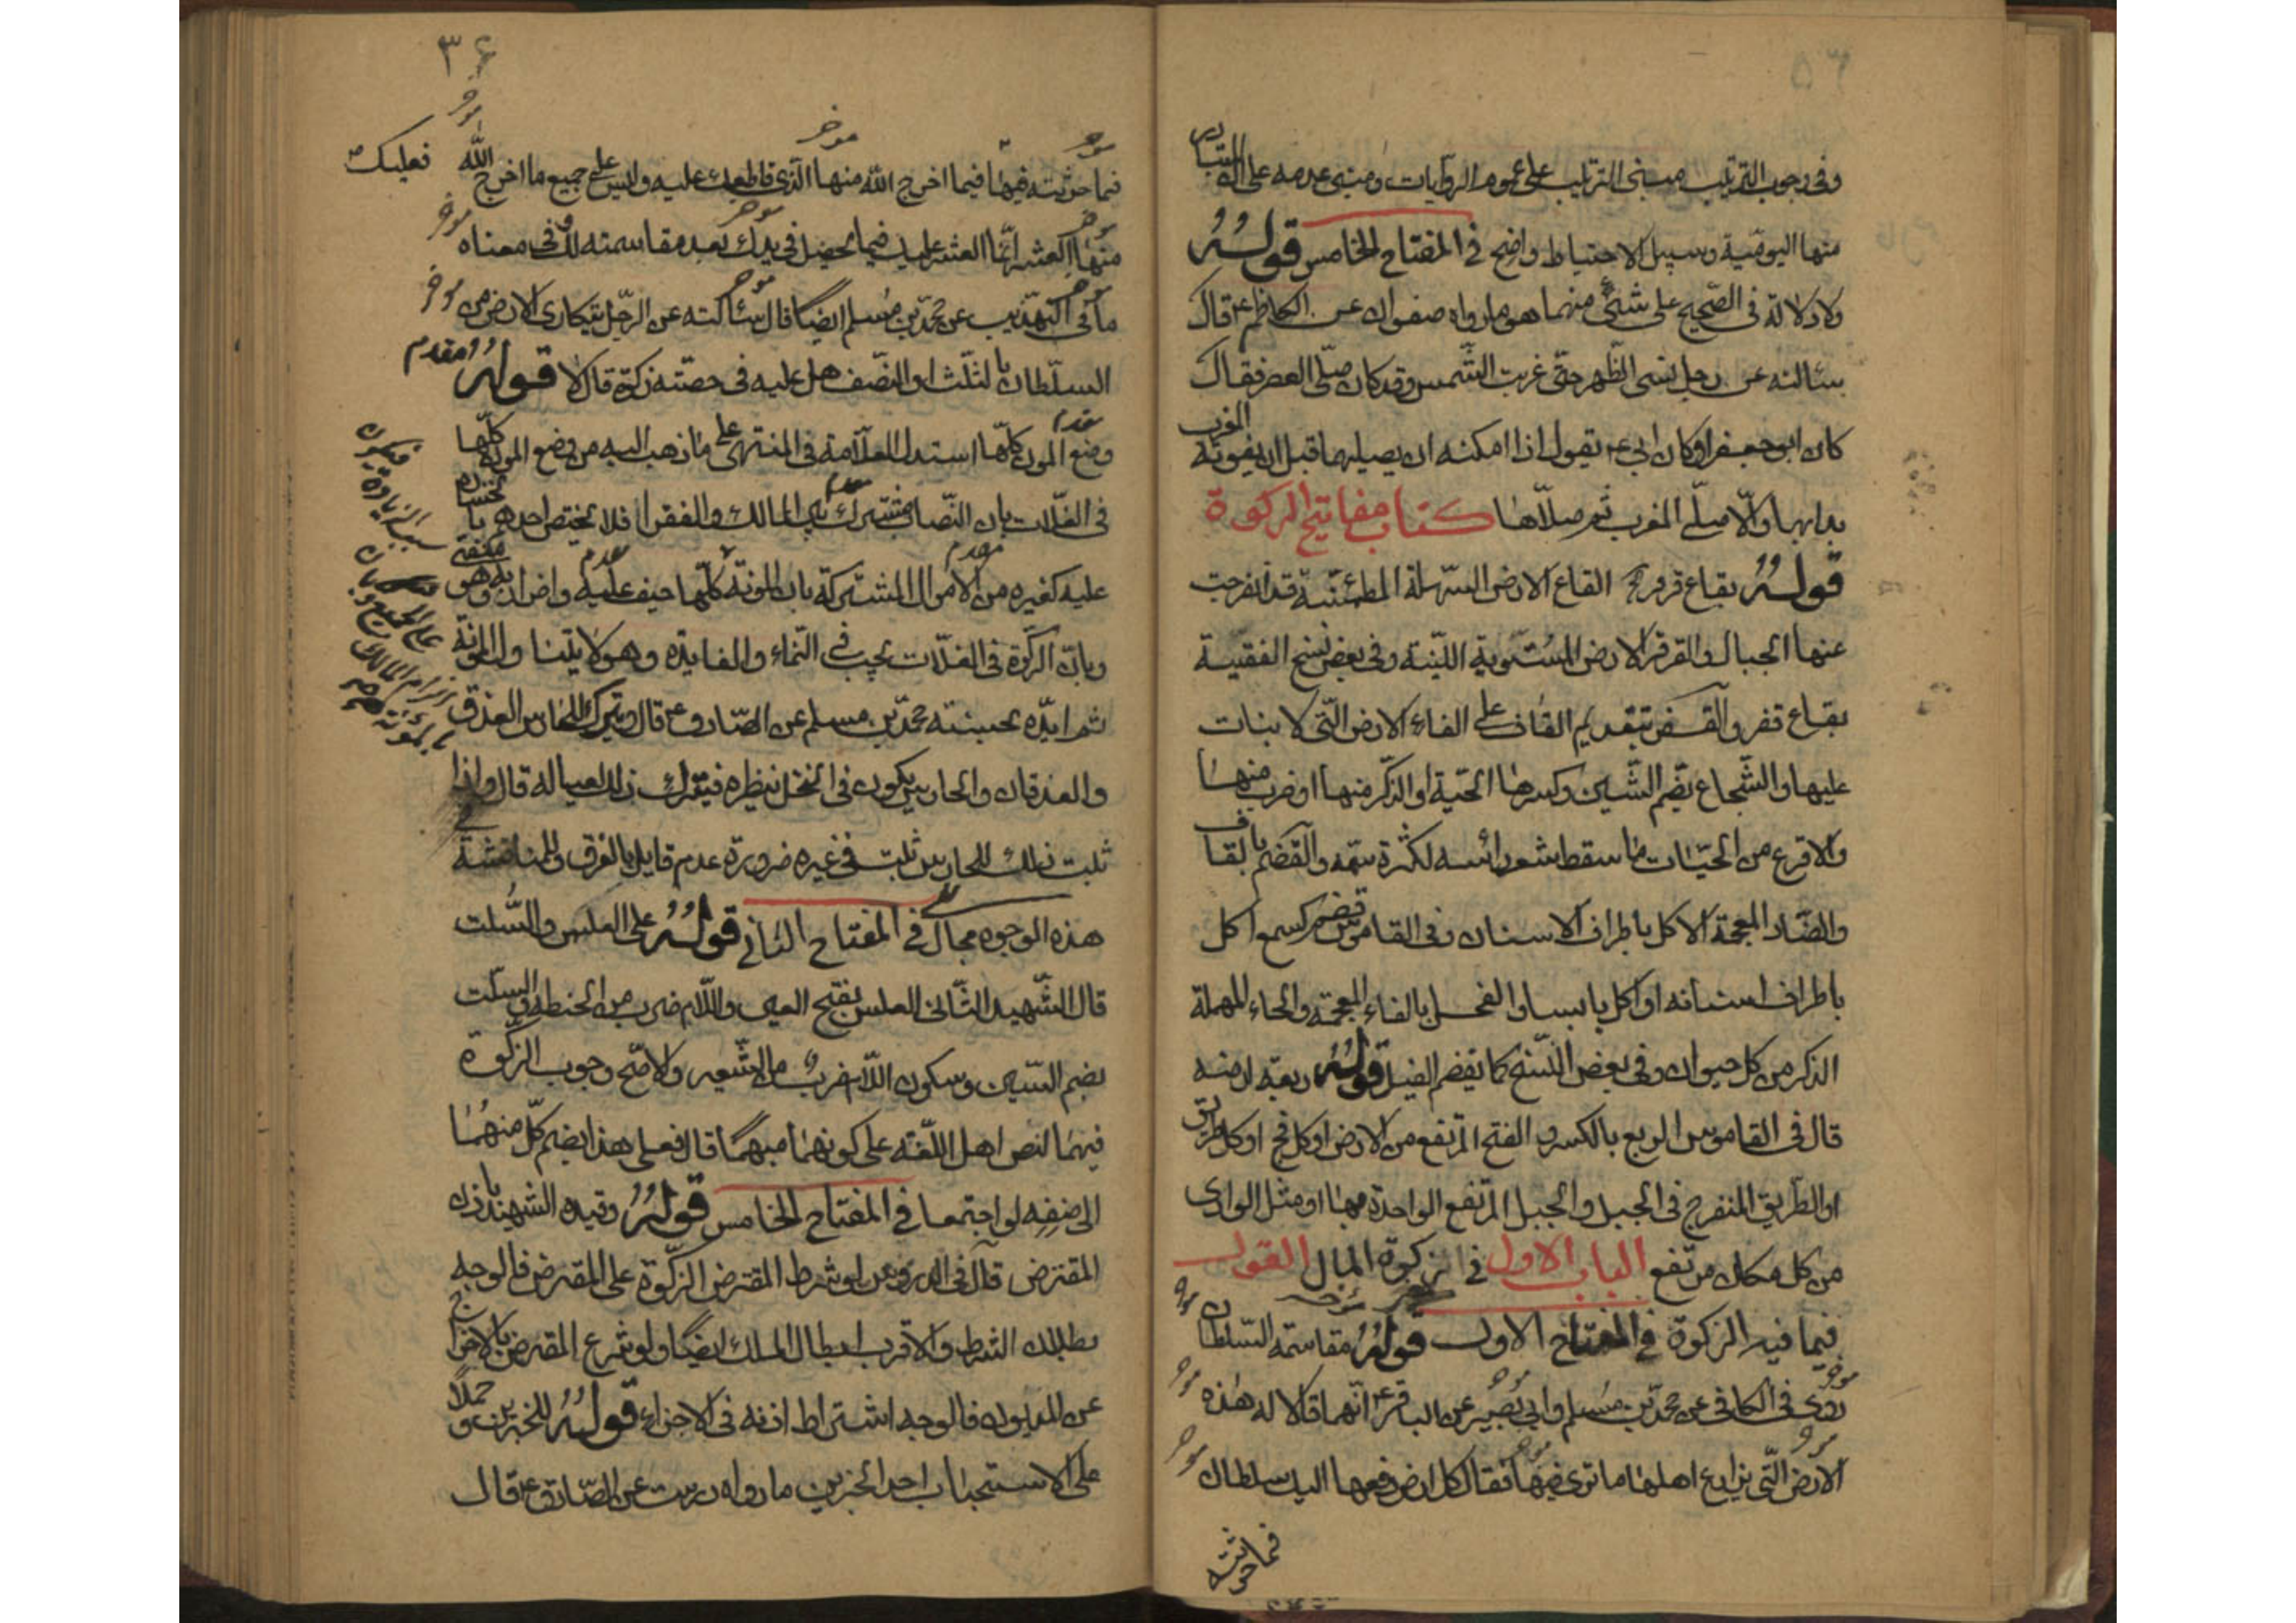 وفى وجوب الترتيب مبنى الترتيب على عموم الروايات ومبنى عدمه على المتبادر
منها اليومية وسبيل الاحتياط واضح فى المفتاح الخامس قولــه
ولا دلالة فى الصحيح على شئ منهما هو ما رواه صفوان عن الكاظم ع قال
سئالته عن رجل نسى الظهر حتى غربت الشمس وقد كان صلى العصر فقال
كان ابو جعفر او كان ابى ع يقول اذا امكنه ان يصليها قبل ان يفوته المغرب
بدا بها والا صلى المغرب ثم صلاها كتاب مفاتيح الزكوة
قولــه بقاع قرقر القاع الارض السهلة المطمئنة قد انفرجت
عنها الجبال والقرقر الارض المستوية اللينة وفى بعض نسخ الفقيه
بقاع قفر والقفر بتقديم القاف على الفاء الارض التى لا نبات
عليها والشجاع بضم الشين وكسرها الحية او الذكر منها او ضرب منها
والاقرع من الحيات ما سقط شعر رائسه لكثرة سمه والقضم بالقاف
والضاد المعجمة الاكل باطراف الاسنان وفى القاموس قضم كسمع اكل
باطراف اسنانه او اكل يابسا والفحل بالفاء المعجمة والحاء المهملة
الذكر من كل حيوان وفى بعض النسخ كما يقضم الفيل قوله ريعة ارضه
قال فى القاموس الريع بالكسر والفتح المرتفع من الارض او كل فج او كل طريق
او الطريق المنفرج فى الجبل والجبل المرتفع الواحدة بهاء او مثل الوادى
من كل مكان مرتفع الباب الاول فى زكوة المال القول
فيما فيه الزكوة فى المفتاح الاول قوله مقاسمة السلطان
روى فى الكافى عن محمد بن مسلم وابى بصير عن الباقر ع انهما قالا له هذه
الارض التى يزارع اهلها ما ترى فيها فقال كل ارض دفعها اليك سلطان
فما حرثته
٣۶
فما حرثته فيها فيما اخرج الله منها الذى قاطعك عليه وليس على جميع ما اخرج الله
فعليك
منها العشر انما العشر عليك فيما يحصل فى يدك بعد مقاسمته لك وفى معناه
ما فى التهذيب عن محمد بن مسلم ايضا قال سئالته عن الرجل يتكارى الارض من
السلطان بالثلث او النصف هل عليه فى حصته زكوة قال لا قولــه
وضع المون كلها استدل العلامة فى المنتهى على ما ذهب اليه من وضع المونة كلها
فى الغلات بان النصاب مشترك بين المالك والفقرا فلا يختص احدهم بالخسارة
عليه كغيره من الاموال المشتركة بان المونة كلها حيف عليه واضرار به وهو منفى
وبان الزكوة فى الغلات تجب فى النماء والفايده وهو لا يتناول المؤنة
ثم ايده بحسنة محمد بن مسلم عن الصادق ع قال ويترك للحارس العذق
والعذقان والحارس يكون فى النخل ينظره فيترك ذلك لعياله قال واذا
ثبت ذلك للحارس ثبت فى غيره ضرورة عدم قايل بالفرق وللمناقشة فى
هذه الوجوه مجال فى المفتاح الثانى قولــه على العلس والسلت
قال الشهيد الثانى العلس بفتح العين واللام ضرب من الحنطة والسلت
بضم السين وسكون اللام ضرب من الشعير والاصح وجوب الزكوة
فيهما لنص اهل اللغة على كونهما منهما قال فعلى هذا يضم كل منهما
الى صنفه لو اجتمعا فى المفتاح الخامس قولــه وقيده الشهيد باذن
المقترض قال فى الدروس لو شرط المقترض الزكوة على المقرض فالوجه
بطلان الشرط والاقرب ابطال الملك ايضا ولو تبرع المقرض بالاخراج
عن المديون فالوجه اشتراط اذنه فى الاجزاء قولــه للخبرين وحملا
على الاستحباب احد الخبرين ما رواه درست عن الصادق ع قال